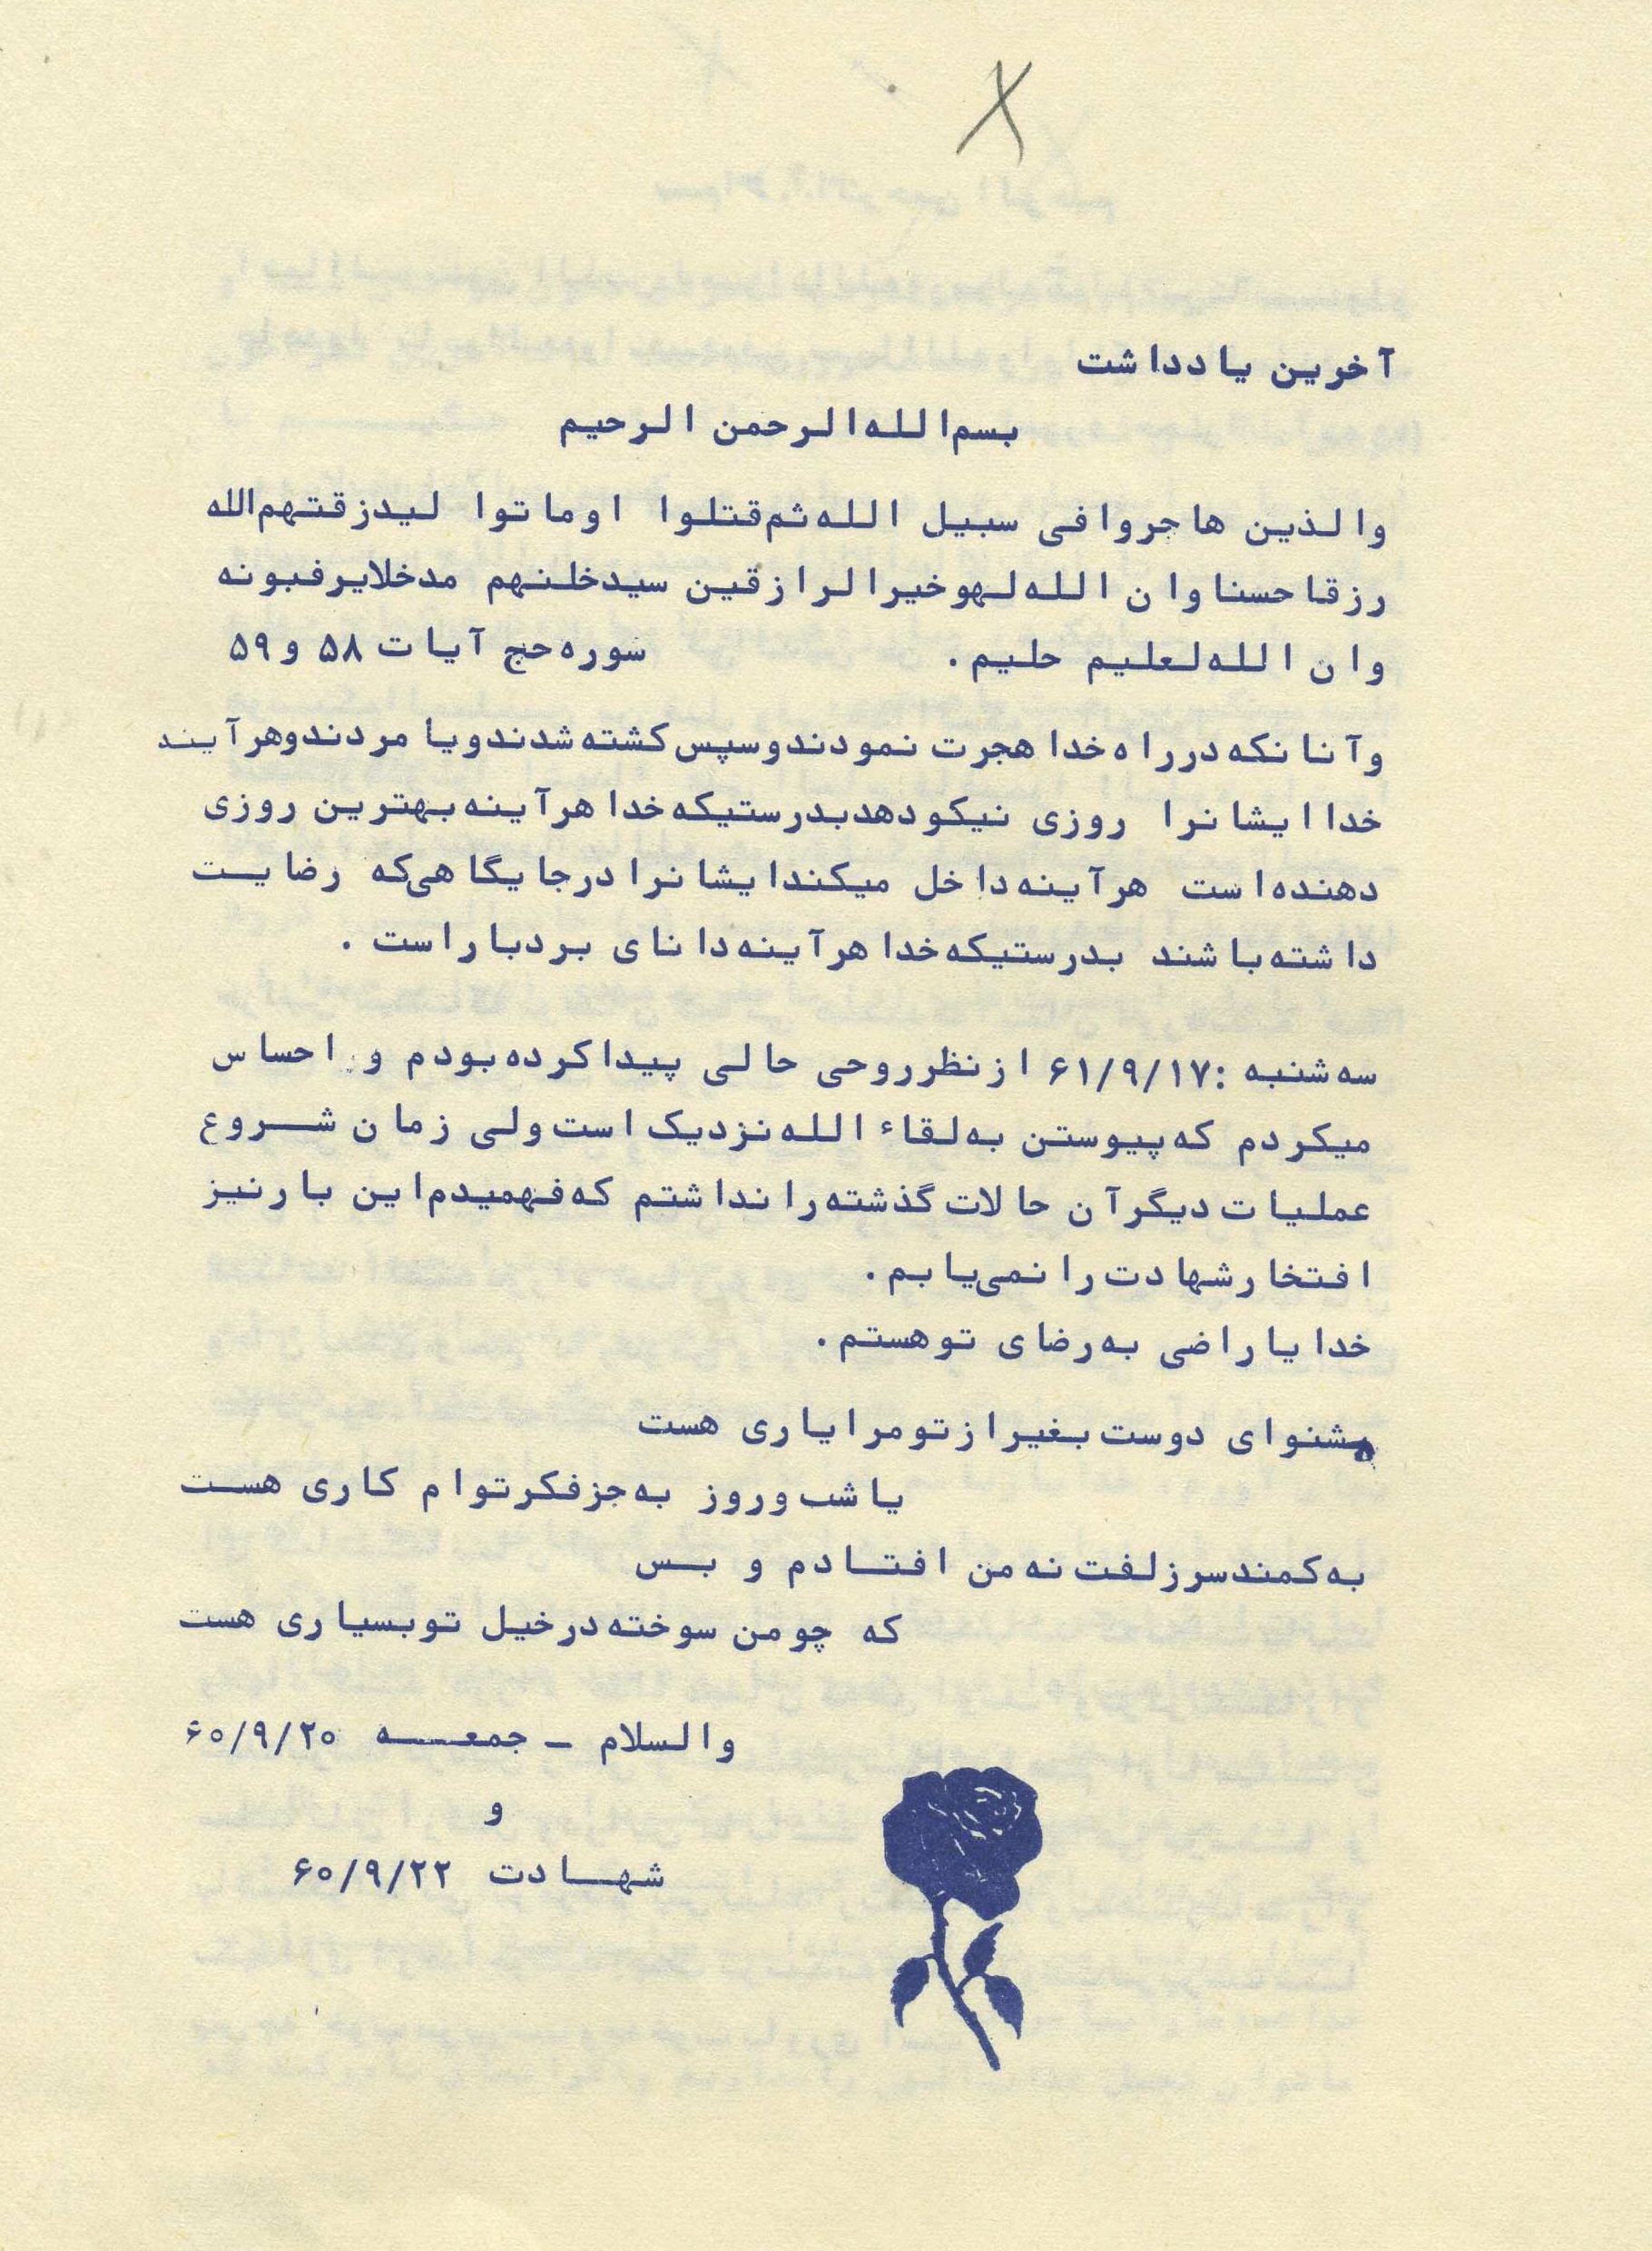 آخرین یادداشت
بسم الله الرحمن الرحیم
والذین هاجروا فی سبیل الله ثم قتلوا اوماتوا لیدزقتهم الله
رزقا حسنا وان الله لهو خیرالرازقین سیدخلنهم مدخلایرفبونه
وان الله لعلیم حلیم .
سوره حج آیات ۵۸ و ۵۹
وآنانکه درراه خدا هجرت نمودند وسپس کشته شدند ویا مردند وهرآیند
خدا ایشانرا روزی نیکو دهد بدرستیکه خدا هرآینه بهترین روزی
دهنده است هرآینه داخل میکند ایشانرا درجایگاهی که رضایت
داشته باشند بدرستیکه خدا هرآینه دانای بردبار است .
سه شنبه :۶۱/۹/۱۷ ازنظر روحی حالی پیدا کرده بودم و احساس
میکردم که پیوستن به لقاء الله نزدیک است ولی زمان شروع
عملیات دیگر آن حالات گذشته را نداشتم که فهمیدم این بار نیز
افتخار شهادت را نمی‌یابم .
خدایا راضی به رضای توهستم .
مشنوای دوست بغیر ازتومرا یاری هست
یا شب وروز به جز فکرتوام کاری هست
به کمند سر زلفت نه من افتادم و بس
که چومن سوخته درخیل تو بسیاری هست
والسلام – جمعه ۶۰/۹/۲۰
و
شهادت ۶۰/۹/۲۲